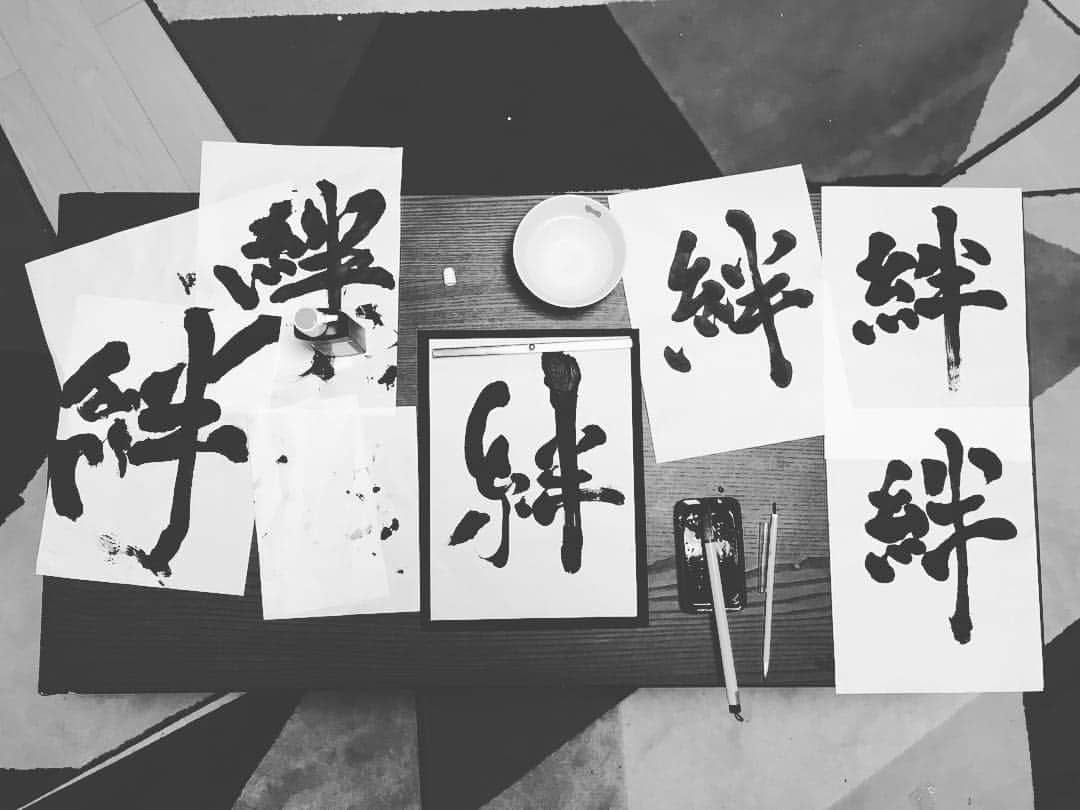 絆
絆
絆
絆
絆
絆